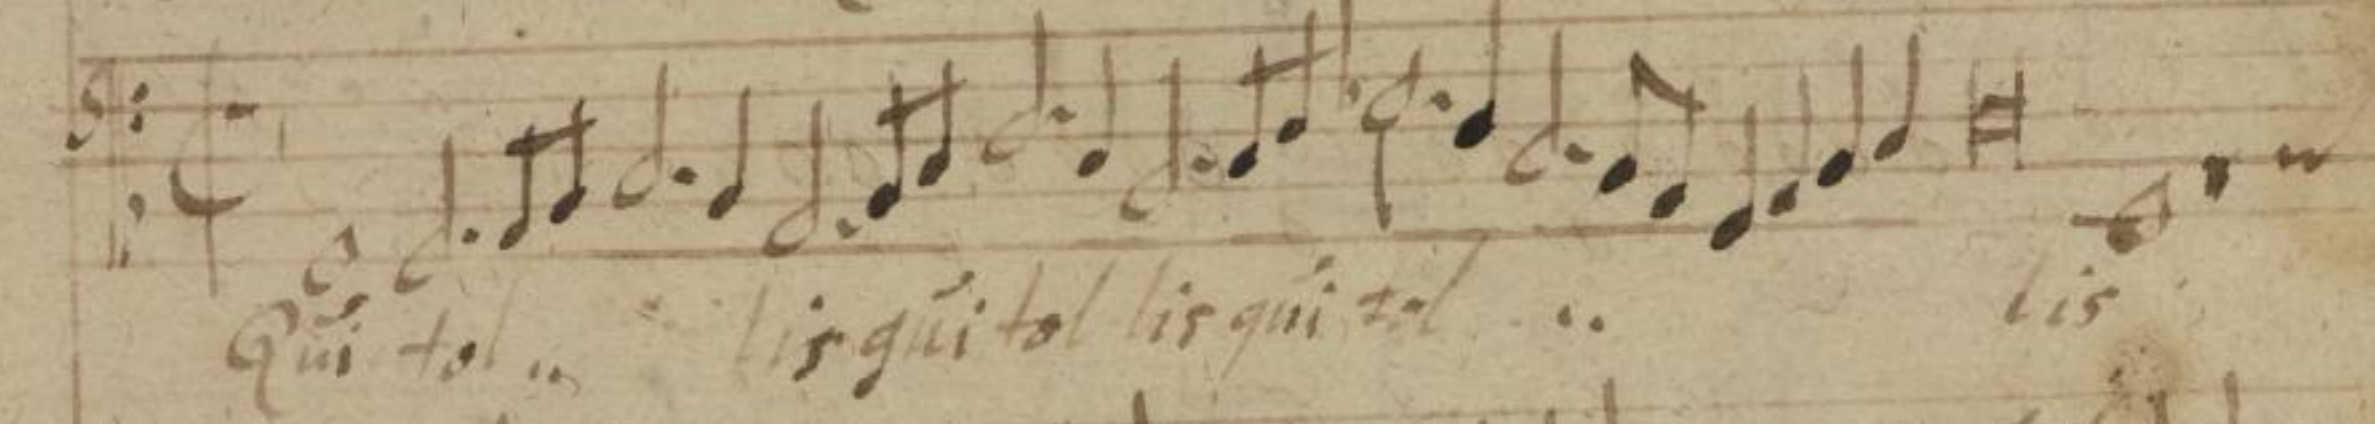 Qui tol .. lis qui tol lis qui tol .. lis